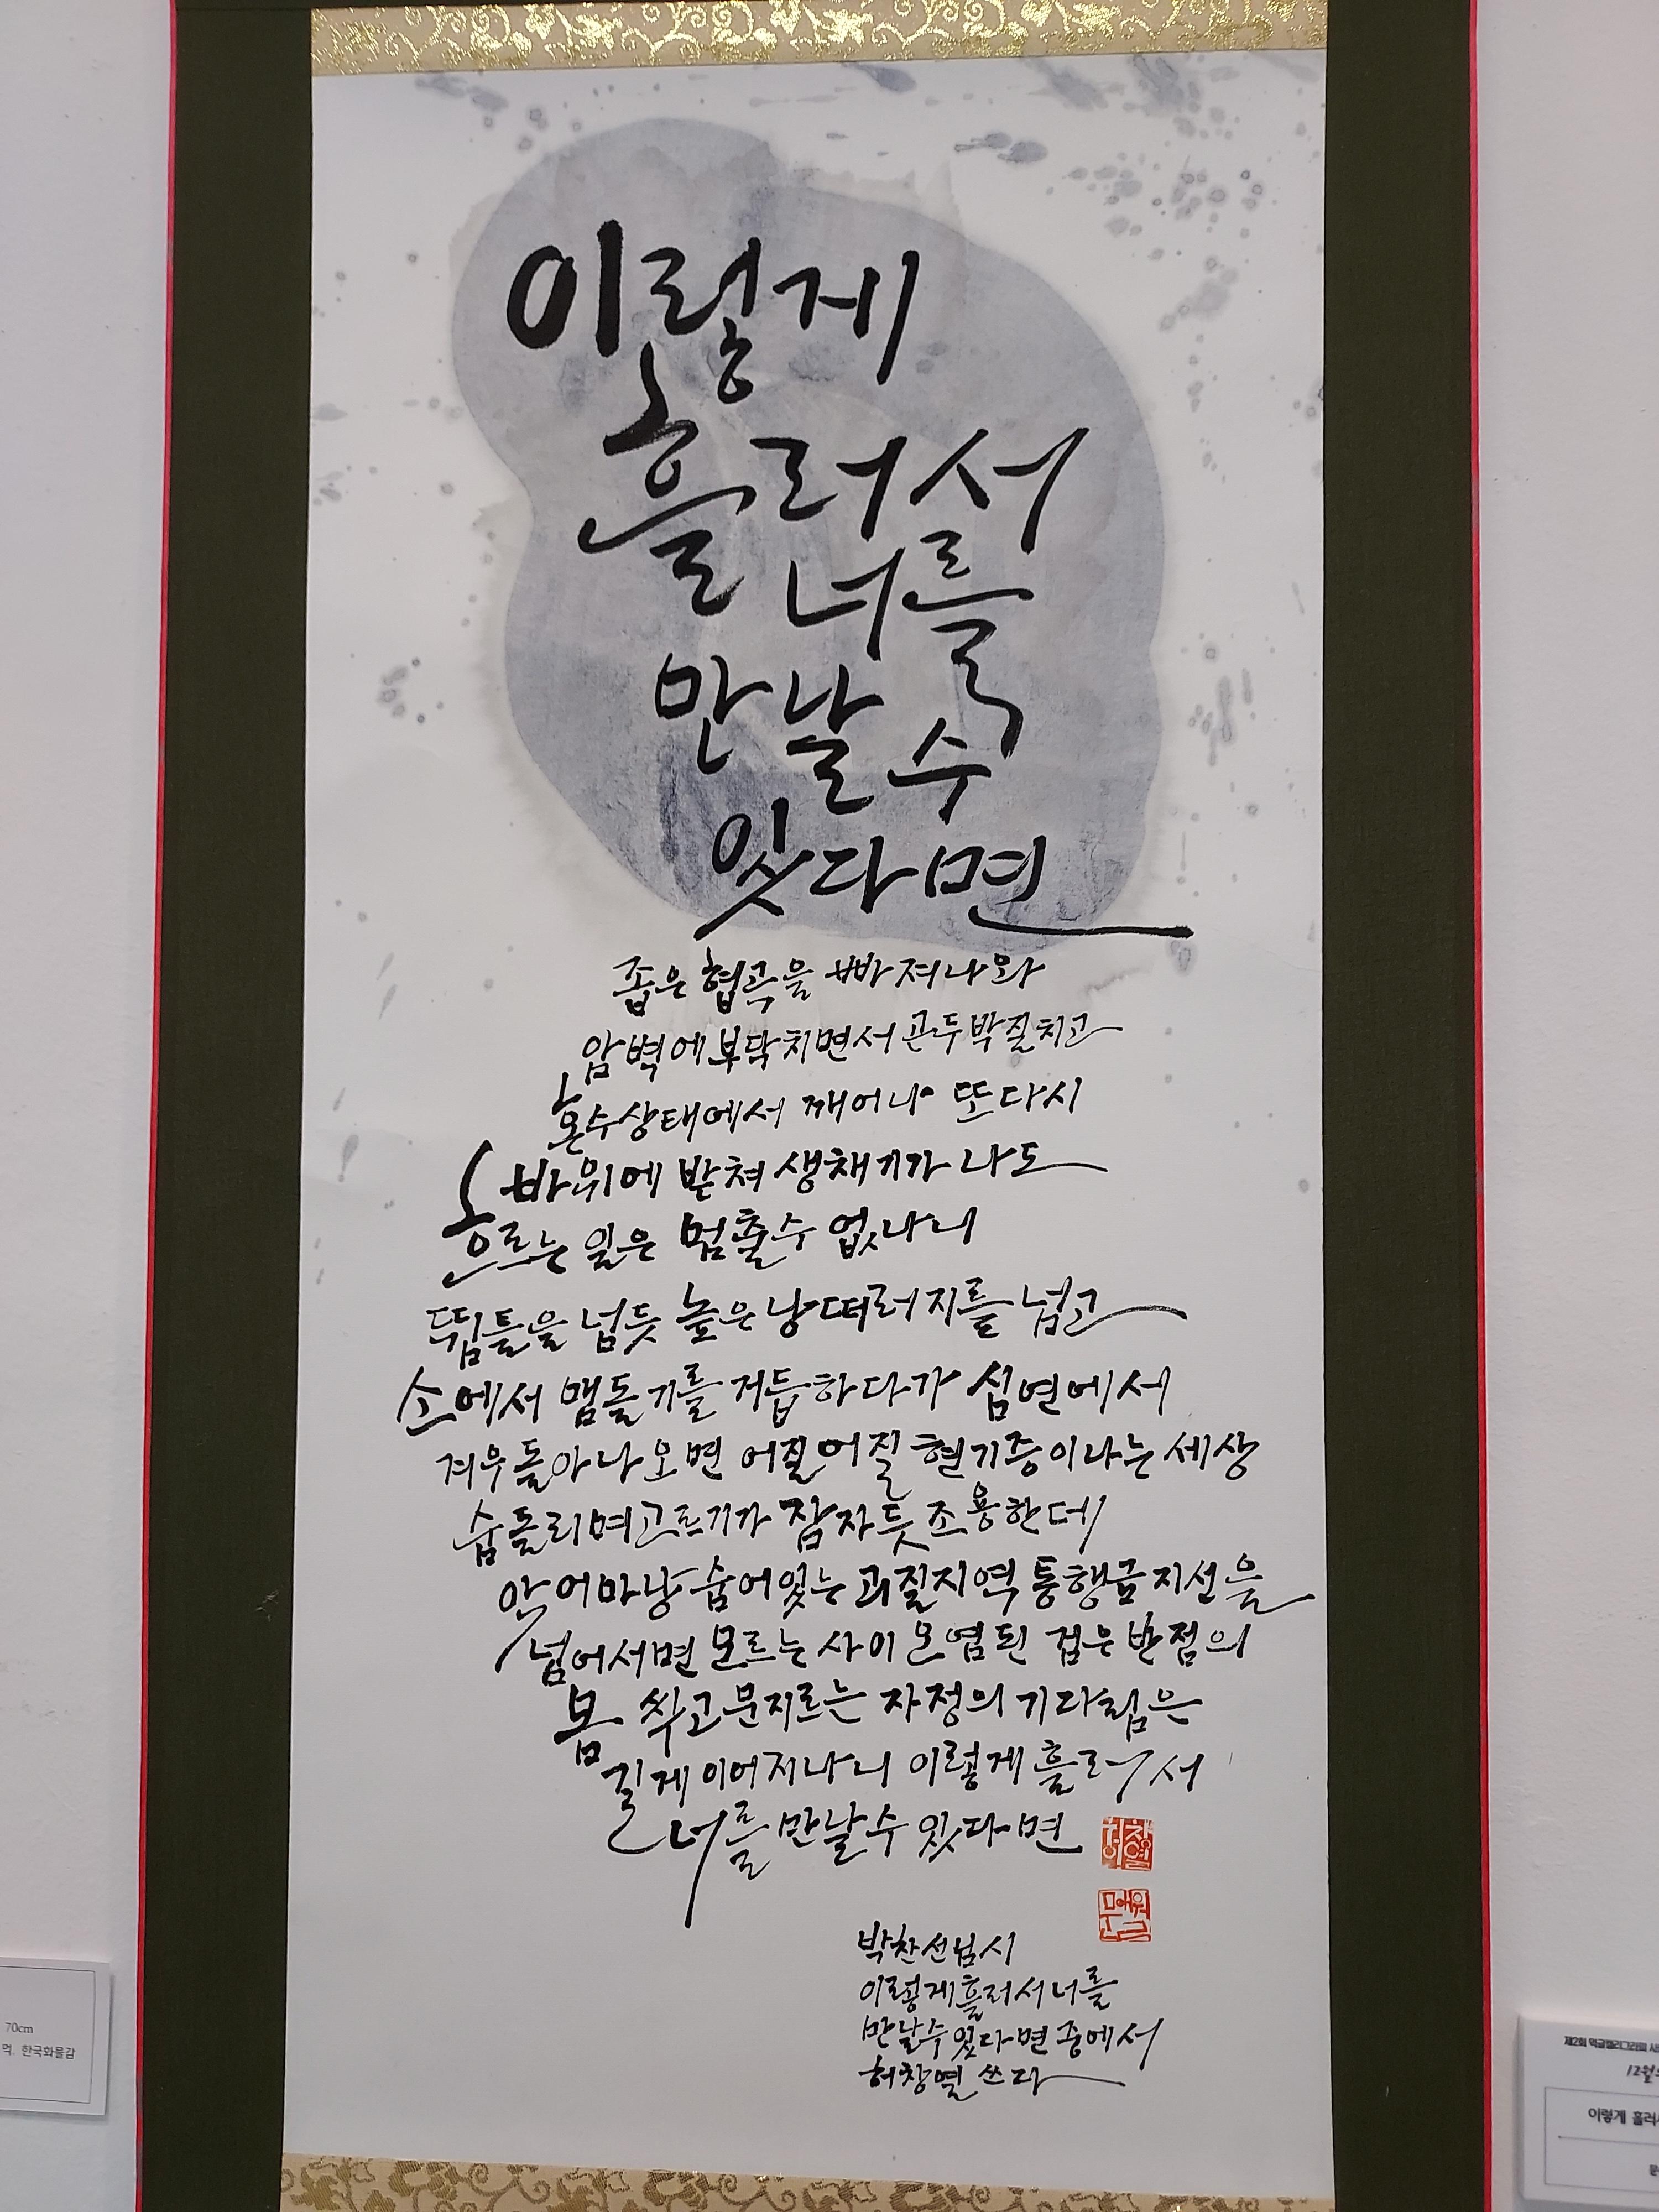 이렇게
흘러서
너를
만날 수
있다면
좁은 협곡을 빠져나와
암벽에 부닥치면서 곤두박질치고
혼수상태에서 깨어나 또다시
바위에 받쳐 생채기가 나도
흐르는 일은 멈출 수 없나니
뜀틀을 넘듯 높은 낭떠러지를 넘고
소에서 맴돌기를 거듭하다가 심연에서
겨우 돌아 나오면 어질어질 현기증이 나는 세상
숨돌리며 고르기가 잠자듯 조용한데
악어마냥 숨어있는 괴질지역 통행금지선을
넘어서면 모르는 사이 오염된 검은 반점의
몸 씻고 문지르는 자정의 기다림은
길게 이어지나니 이렇게 흘러서
너를 만날 수 있다면
박찬선님 시
이렇게 흘러서 너를
만날 수 있다면 중에서
허창열 쓰다
허창열
70cm
먹. 한국화물감
제2회 먹글캘리그라피
12월
이렇게 흘러